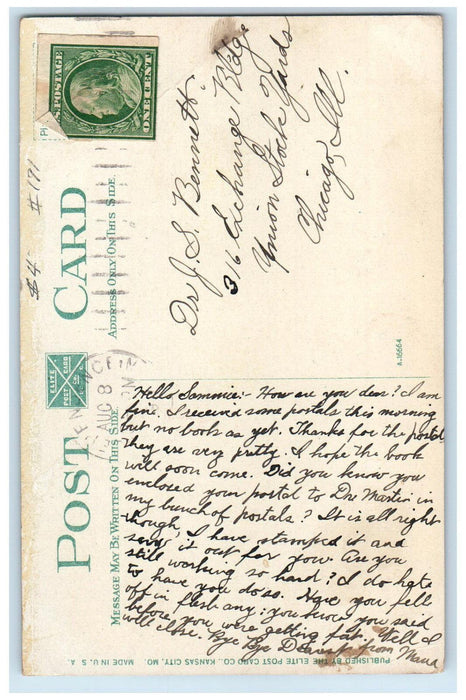 U.S. POSTAGE
ONE CENT
$4 #171
POST CARD
ELITE POST CARD CO.
ADDRESS ONLY ON THIS SIDE.
MESSAGE MAY BE WRITTEN ON THIS SIDE
AUG 8
Dr J. S. Bennett.
316 Exchange Bldg.
Union Stock Yards
Chicago, Ill.
A-16664
Hello Sammie:- How are you dear? I am
fine. I receivd some postals this morning
but no book as yet. Thanks for the postal
they are very pretty. I hope the book
will soon come. Did you know you
enclosed your postal to Dr Martin in
my bunch of postals? It is all right
though, I have stamped it and
send it out for you. Are you
still working so hard? I do hate
to have you do so. Have you fell
off in flesh any: you know you said
before you were getting fat. Well I
will close. Bye Bye Dearest from Maud
PUBLISHED BY THE ELITE POST CARD CO., KANSAS CITY, MO. MADE IN U. S. A.